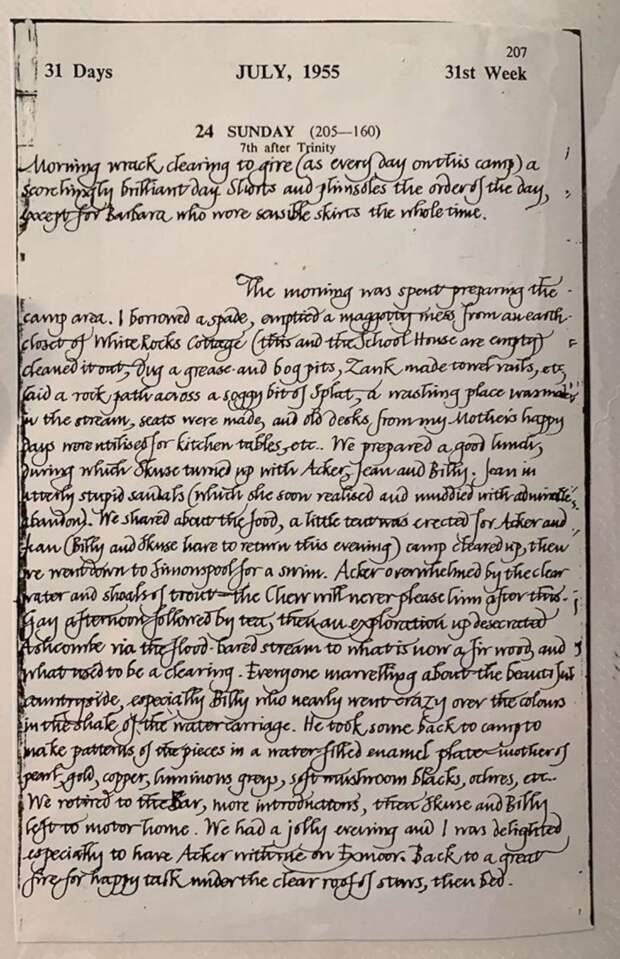 207
31 Days JULY, 1955 31st Week
24 SUNDAY (205—160)
7th after Trinity
Morning wrack clearing to give (as every day on this camp) a
scorchingly brilliant day. Shorts and plimsoles the order of the day,
except for Barbara who wore sensible skirts the whole time.
The morning was spent preparing the
camp area. I borrowed a spade, emptied a maggotty mess from an earth
closet of White Rocks Cottage (this and the School House are empty)
cleaned it out, dug a grease and bog pits, Zank made towel rails, etc,
laid a rock path across a soggy bit of Splat, a washing place was made
in the stream, seats were made, and old desks from my Mother's happy
days were utilised for kitchen tables, etc.. We prepared a good lunch,
during which Skuse turned up with Acker, Jean and Billy. Jean in
utterly stupid sandals (which she soon realised and muddied with admirable
abandon). We shared about the food, a little tent was erected for Acker and
Jean (Billy and Skuse have to return this evening) camp cleared up, then
we went down to Simonspool for a swim. Acker overwhelmed by the clear
water and shoals of trout – the Chew will never please him after this.
Gay afternoon followed by tea, then an exploration up desecrated
Ashcombe via the flood-bared stream to what is now a fir wood, and
what used to be a clearing. Everyone marvelling about the beautiful
countryside, especially Billy who nearly went crazy over the colours
in the shale of the water carriage. He took some back to camp to
make patterns of the pieces in a water-filled enamel plate – mother of
pearl, gold, copper, luminous greys, soft mushroom blacks, ochres, etc..
We retired to the Bar, more introductions, then Skuse and Billy
left to motor home. We had a jolly evening and I was delighted
especially to have Acker with me on Exmoor. Back to a great
fire for happy talk under the clear roof of stars, then bed.